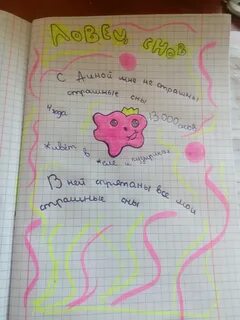 ЛОВЕЦ СНОВ
С Диной мне не страшны
страшные сны
4 года
13.000 снов
живёт в желе и
В ней спрятаны все мои
страшные сны